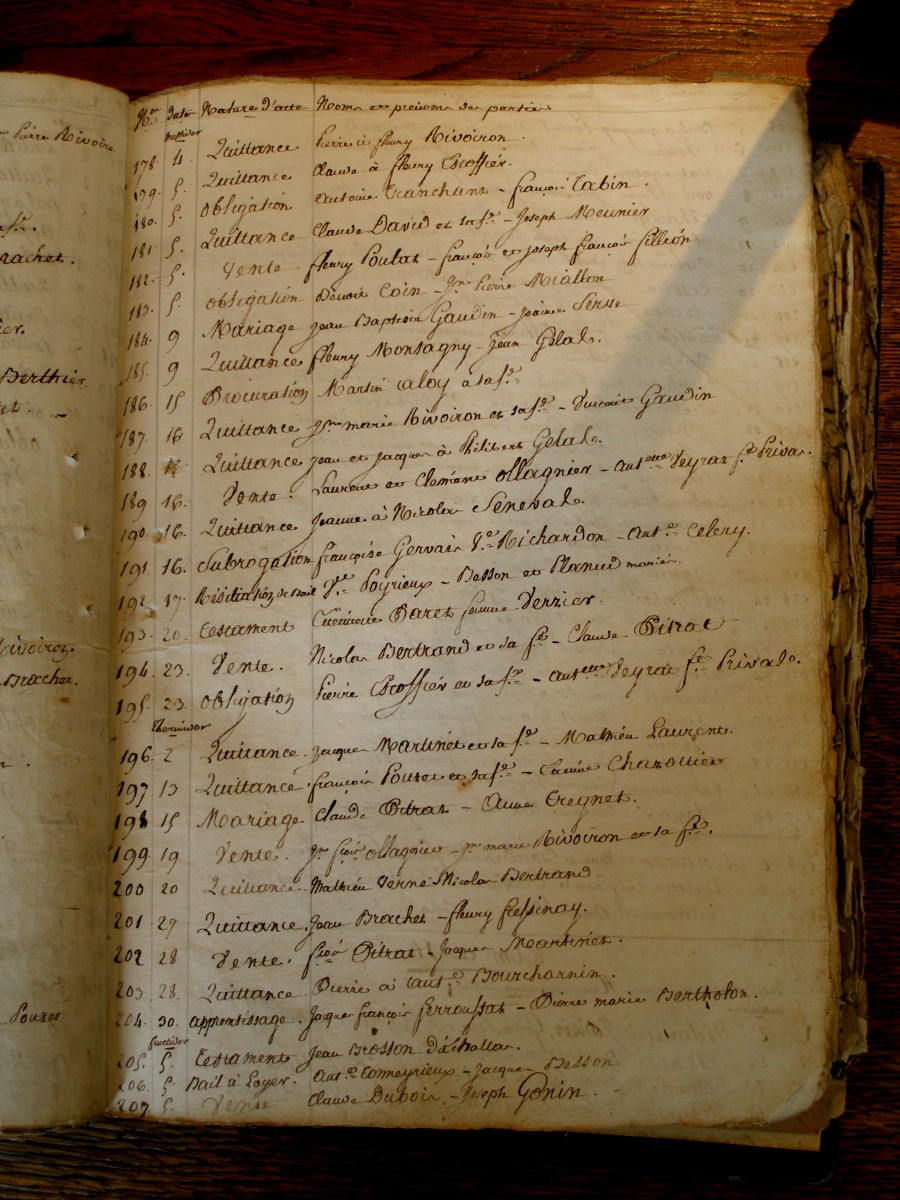 Pierre Rivoire
Brachet.
Berthier
Rivoiron
Brachet.
Pouzet
N.os Dates Nature d'acte Noms et prénoms des parties
Messidor
178. 4. Quittance Pierre à fleury Rivoiron.
179. 5. Quittance Claude à fleury Escoffier.
180. 5. Obligation Antoine Tranchant - françois Tabin.
181. 5. Quittance Claude David et sa fe. - Joseph Meunier
182. 5. Vente fleury Poulat - françois et joseph françois fillion
183. 5. Obligation Benoit Coin - Jn Pierre Miallon
184. 9 Mariage Jean Baptiste Gaudin - Jeanne Serve
185. 9 Quittance fleury Montagny - Jean Gelas.
186. 15 Procuration Martin Caloy a sa fe.
187. 16 Quittance Jn marie Rivoiron et sa fe. - Vincent Gaudin
188. 16 Quittance jean et jacques à Philibert Gelas.
189 16. Vente. Laurent et Clemens Ollagnier - Antette Veyrat fe. Priva.
190. 16. Quittance Jeanne à Nicolas Seneval.
191. 16. Subrogation françoise Gervais Ve. Richardon - Ant.e Celery.
192. 17. Résiliation de Bail Ve. Poyrieux - Besson et Planud mariés.
193. 20. Testament Etiennette Daret femme Verzier.
194. 23. Vente. Nicolas Bertrand et sa fe. - Claude Pitrat
195. 23. Obligation Pierre Escoffier et sa fe. - Antette Veyrat fe. Privas.
Thermidor
196. 2 Quittance. Jacques Martinet et sa fe. - Mathieu Laurent.
197 13 Quittance. françois Pouzet et sa fe. - Etienne Chanottier
198 15 Mariage. Claude Pitrat - Anne Treynet.
199. 19 Vente. Jn. fçois Ollagnier - Jn. marie Rivoiron et sa fe.
200 20 Quittance. Mathieu Verne - Nicolas Bertrand
201. 27 Quittance. Jean Brachet - fleury fressinay.
202 28 Vente. fçois Pitrat - Jacques Martinet.
203. 28. Quittance Pierre à Ant.e Bourcharnin.
204. 30. apprentissage. Jaques françois ferroussat - Pierre marie Bertholon.
fructidor
205. 5. Testament Jean Brosson d'Echallas.
206. 5. Bail à Loyer. Ant.e Comeyrieux - Jacques Besson
207 5. Vente Claude Dubois - Joseph Gonin.